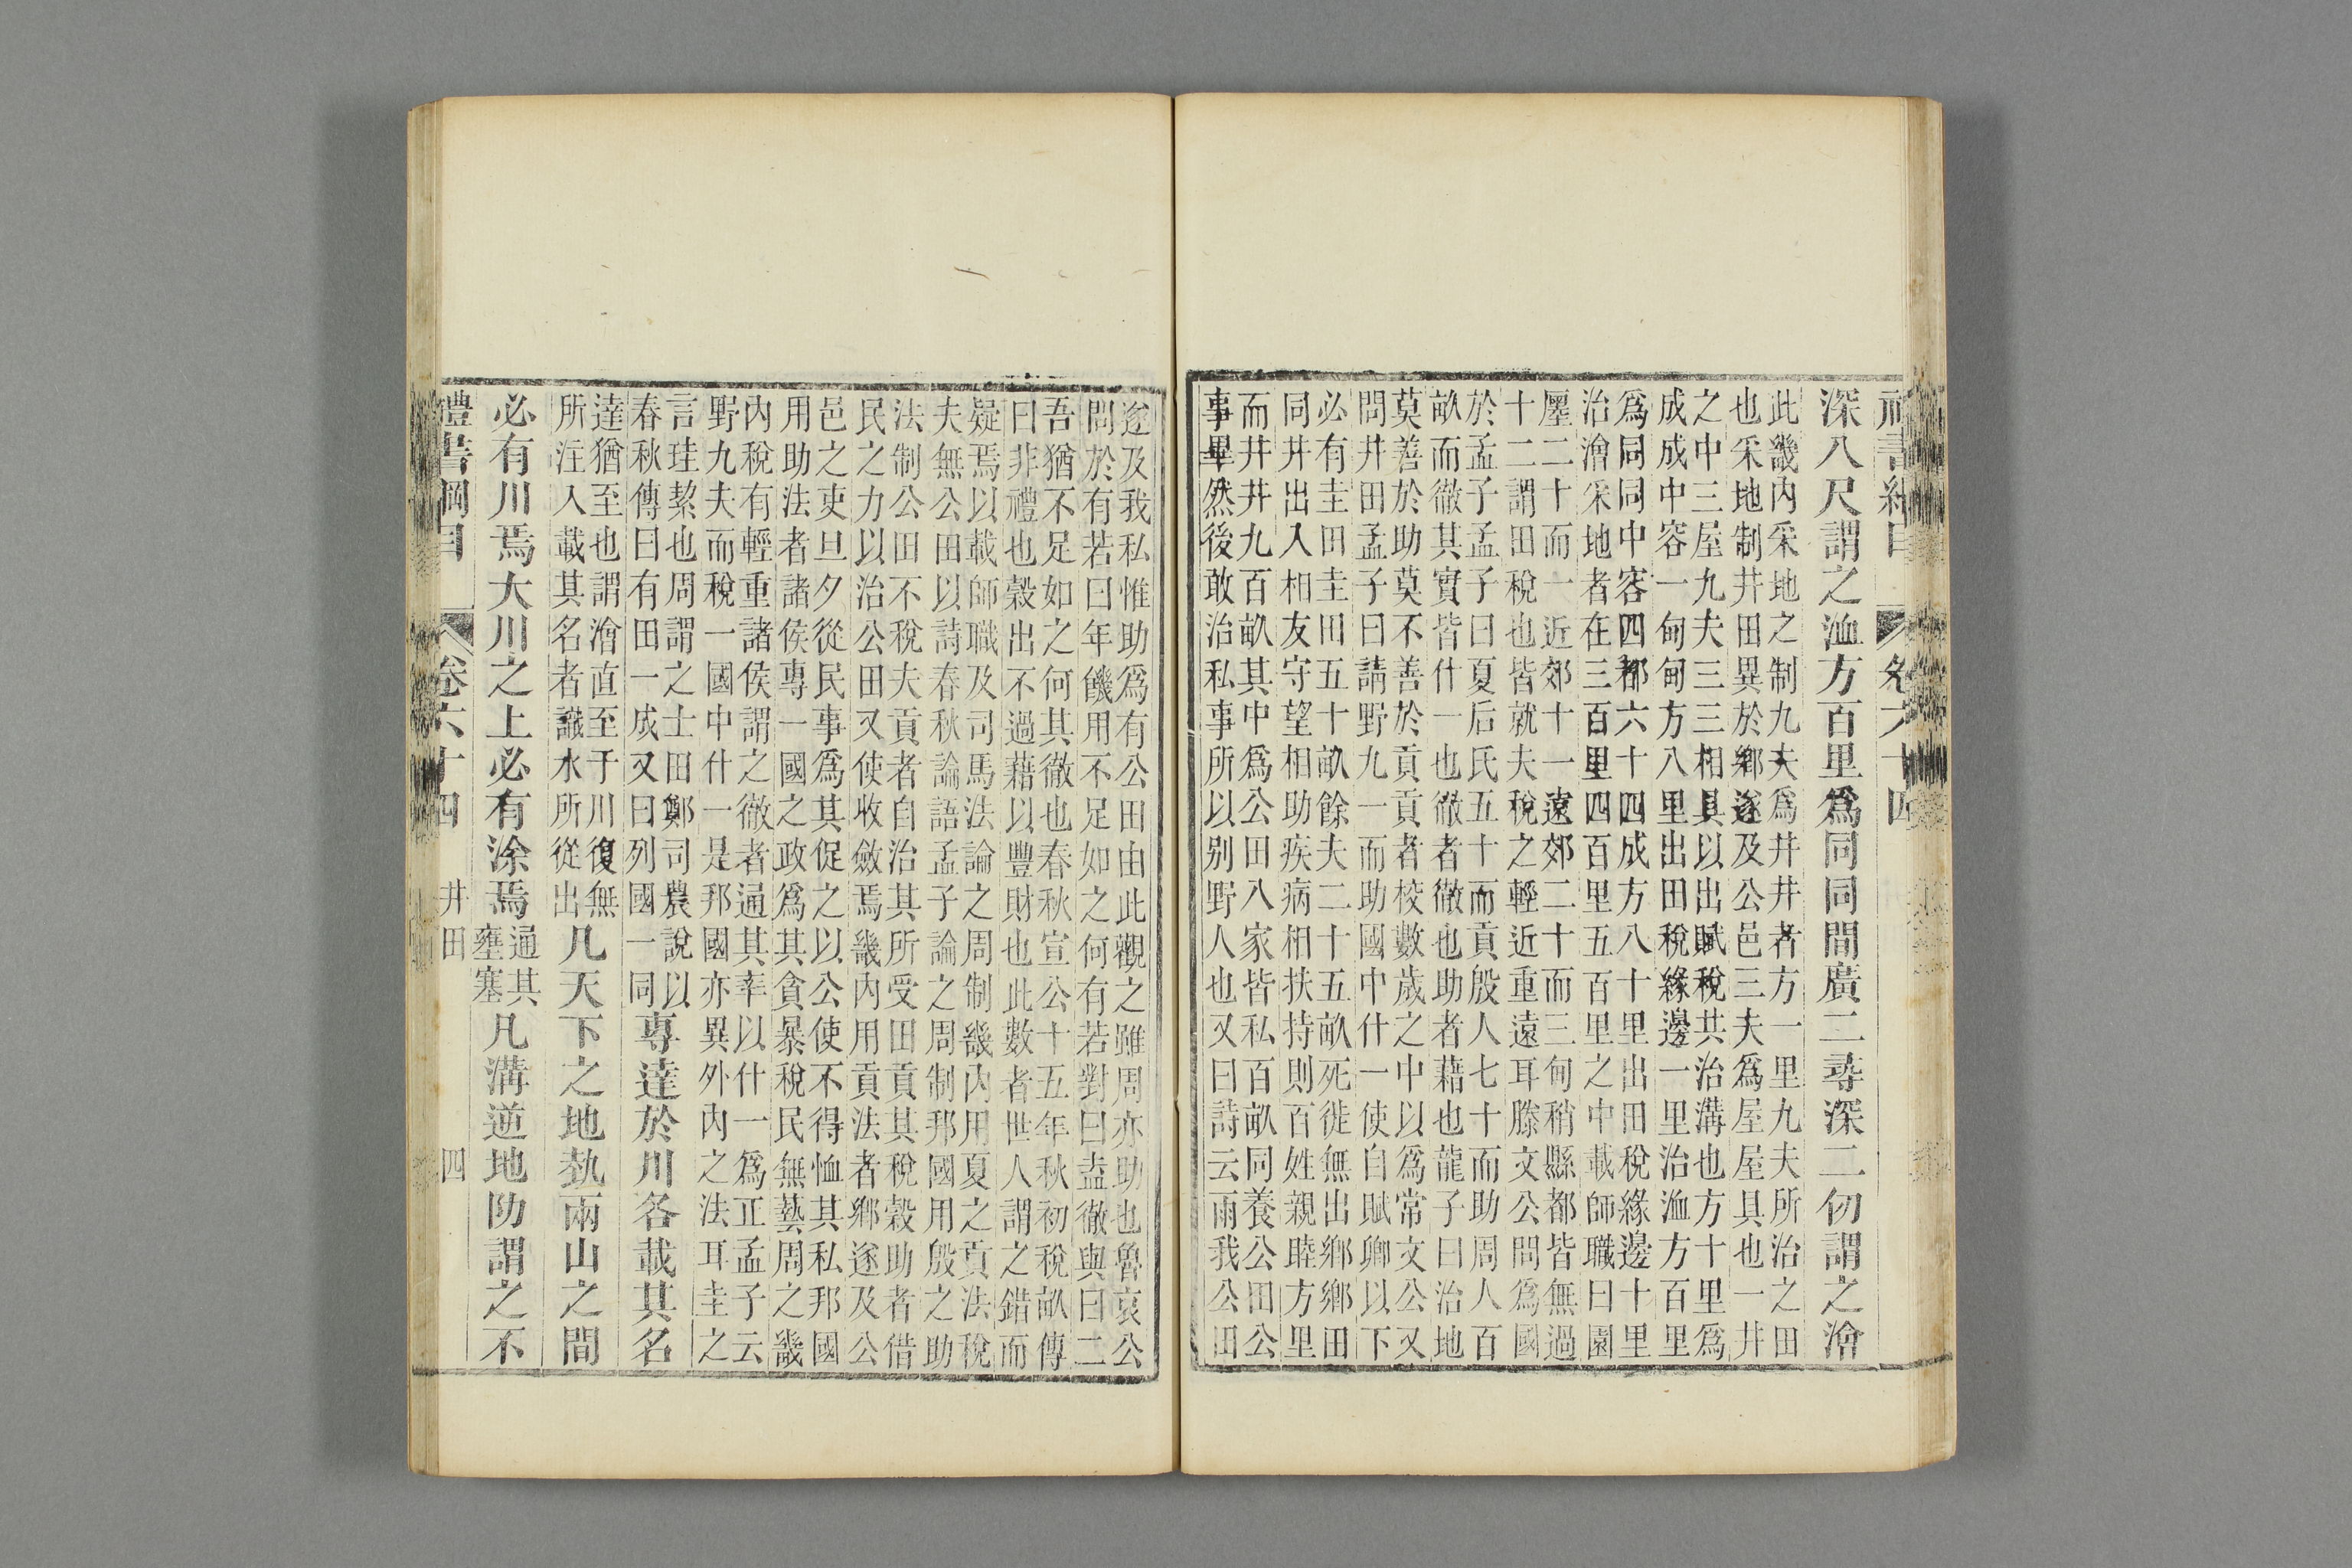 深八尺謂之洫方百里爲同同間廣二尋深二仞謂之澮
此畿内采地之制九夫爲井井者方一里九夫所治之田
也采地制井田異於鄉遂及公邑三夫爲屋屋具也一井
之中三屋九夫三三相具以出賦稅共治溝也方十里爲
成成中容一甸甸方八里出田稅緣邊一里治洫方百里
爲同同中容四都六十四成方八十里出田稅緣邊十里
治澮采地者在三百里四百里五百里之中載師職曰園
廛二十而一近郊十一遠郊二十而三甸稍縣都皆無過
十二謂田稅也皆就夫稅之輕近重遠耳滕文公問爲國
於孟子孟子曰夏后氏五十而貢殷人七十而助周人百
畝而徹其實皆什一也徹者徹也助者藉也龍子曰治地
莫善於助莫不善於貢貢者校數歲之中以爲常文公又
問井田孟子曰請野九一而助國中什一使自賦卿以下
必有圭田圭田五十畝餘夫二十五畝死徙無出鄉鄉田
同井出入相友守望相助疾病相扶持則百姓親睦方里
而井井九百畝其中爲公田八家皆私百畝同養公田公
事畢然後敢治私事所以别野人也又曰詩云雨我公田
遂及我私惟助爲有公田由此觀之雖周亦助也魯哀公
問於有若曰年饑用不足如之何有若對曰盍徹與曰二
吾猶不足如之何其徹也春秋宣公十五年秋初稅畝傳
曰非禮也穀出不過藉以豐財也此數者世人謂之錯而
疑焉以載師職及司馬法論之周制畿内用夏之貢法稅
夫無公田以詩春秋論語孟子論之周制邦國用殷之助
法制公田不稅夫貢者自治其所受田貢其稅穀助者借
民之力以治公田又使收斂焉畿内用貢法者鄉遂及公
邑之吏旦夕從民事爲其促之以公使不得恤其私邦國
用助法者諸侯專一國之政爲其貪暴稅民無藝周之畿
内稅有輕重諸侯謂之徹者通其率以什一爲正孟子云
野九夫而稅一國中什一是邦國亦異外内之法耳圭之
言珪絜也周謂之士田鄭司農說以
春秋傳曰有田一成又曰列國一同
專達於川各載其名
達猶至也謂澮直至于川復無
所注入載其名者識水所從出
凡天下之地埶兩山之間
必有川焉大川之上必有涂焉
通其
壅塞
凡溝逆地阞謂之不
禮書綱目 卷六十四 井田 四